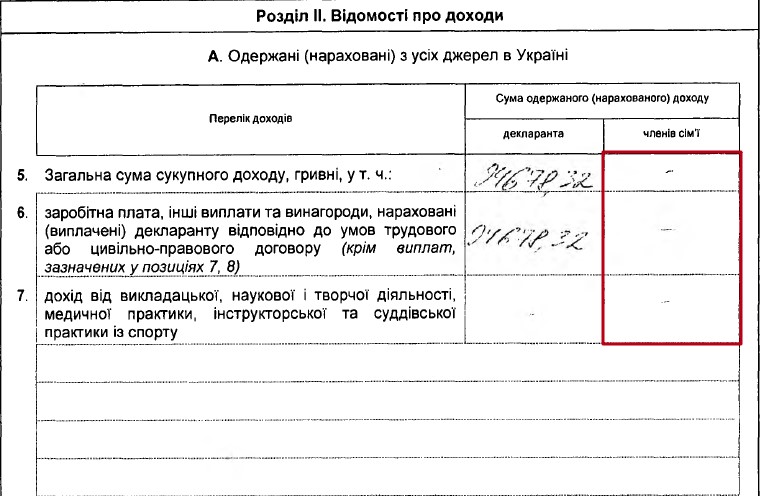 Розділ II. Відомості про доходи
А. Одержані (нараховані) з усіх джерел в Україні
Перелік доходів
Сума одержаного (нарахованого) доходу
декларанта
членів сім'ї
5. Загальна сума сукупного доходу, гривні, у т. ч.: 94678,32 -
6. заробітна плата, інші виплати та винагороди, нараховані
(виплачені) декларанту відповідно до умов трудового
або цивільно-правового договору (крім виплат, 94678,32 -
зазначених у позиціях 7, 8)
7. дохід від викладацької, наукової і творчої діяльності,
медичної практики, інструкторської та суддівської - -
практики із спорту